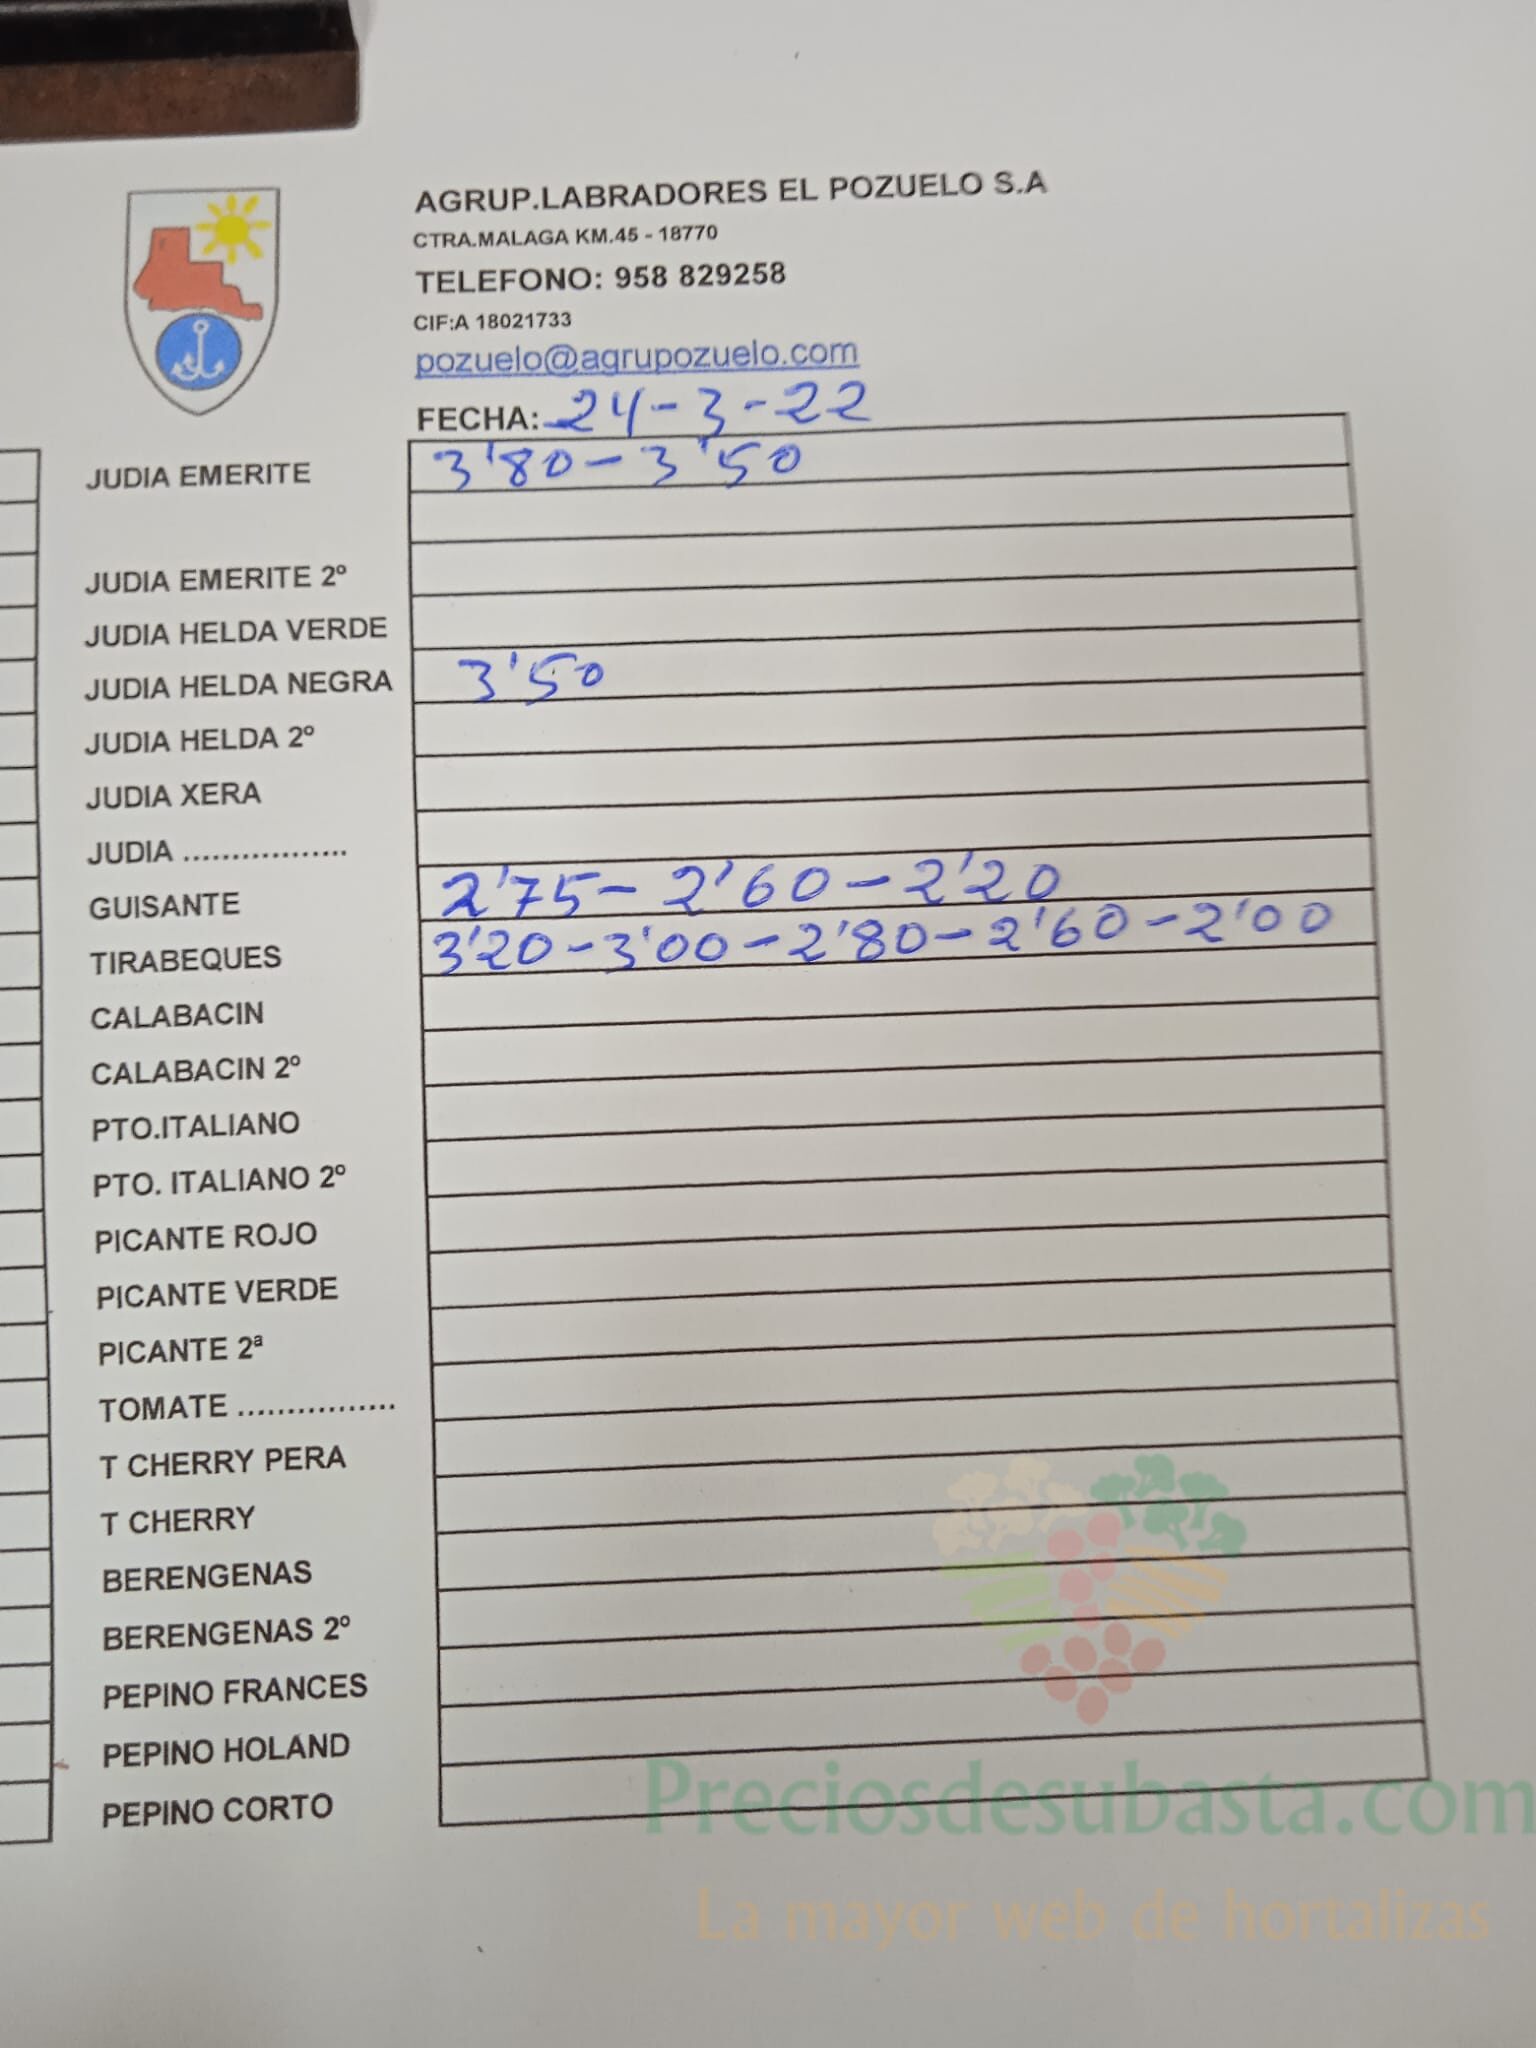 AGRUP.LABRADORES EL POZUELO S.A
CTRA.MALAGA KM.45 - 18770
TELEFONO: 958 829258
CIF:A 18021733
pozuelo@agrupozuelo.com
FECHA: 24-3-22
JUDIA EMERITE 3'80-3'50
JUDIA EMERITE 2º
JUDIA HELDA VERDE
JUDIA HELDA NEGRA 3'50
JUDIA HELDA 2º
JUDIA XERA
JUDIA .................
GUISANTE 2'75-2'60-2'20
TIRABEQUES 3'20-3'00-2'80-2'60-2'00
CALABACIN
CALABACIN 2º
PTO.ITALIANO
PTO. ITALIANO 2º
PICANTE ROJO
PICANTE VERDE
PICANTE 2ª
TOMATE ................
T CHERRY PERA
T CHERRY
BERENGENAS
BERENGENAS 2º
PEPINO FRANCES
PEPINO HOLAND
PEPINO CORTO
Preciosdesubasta.com
La mayor web de hortalizas